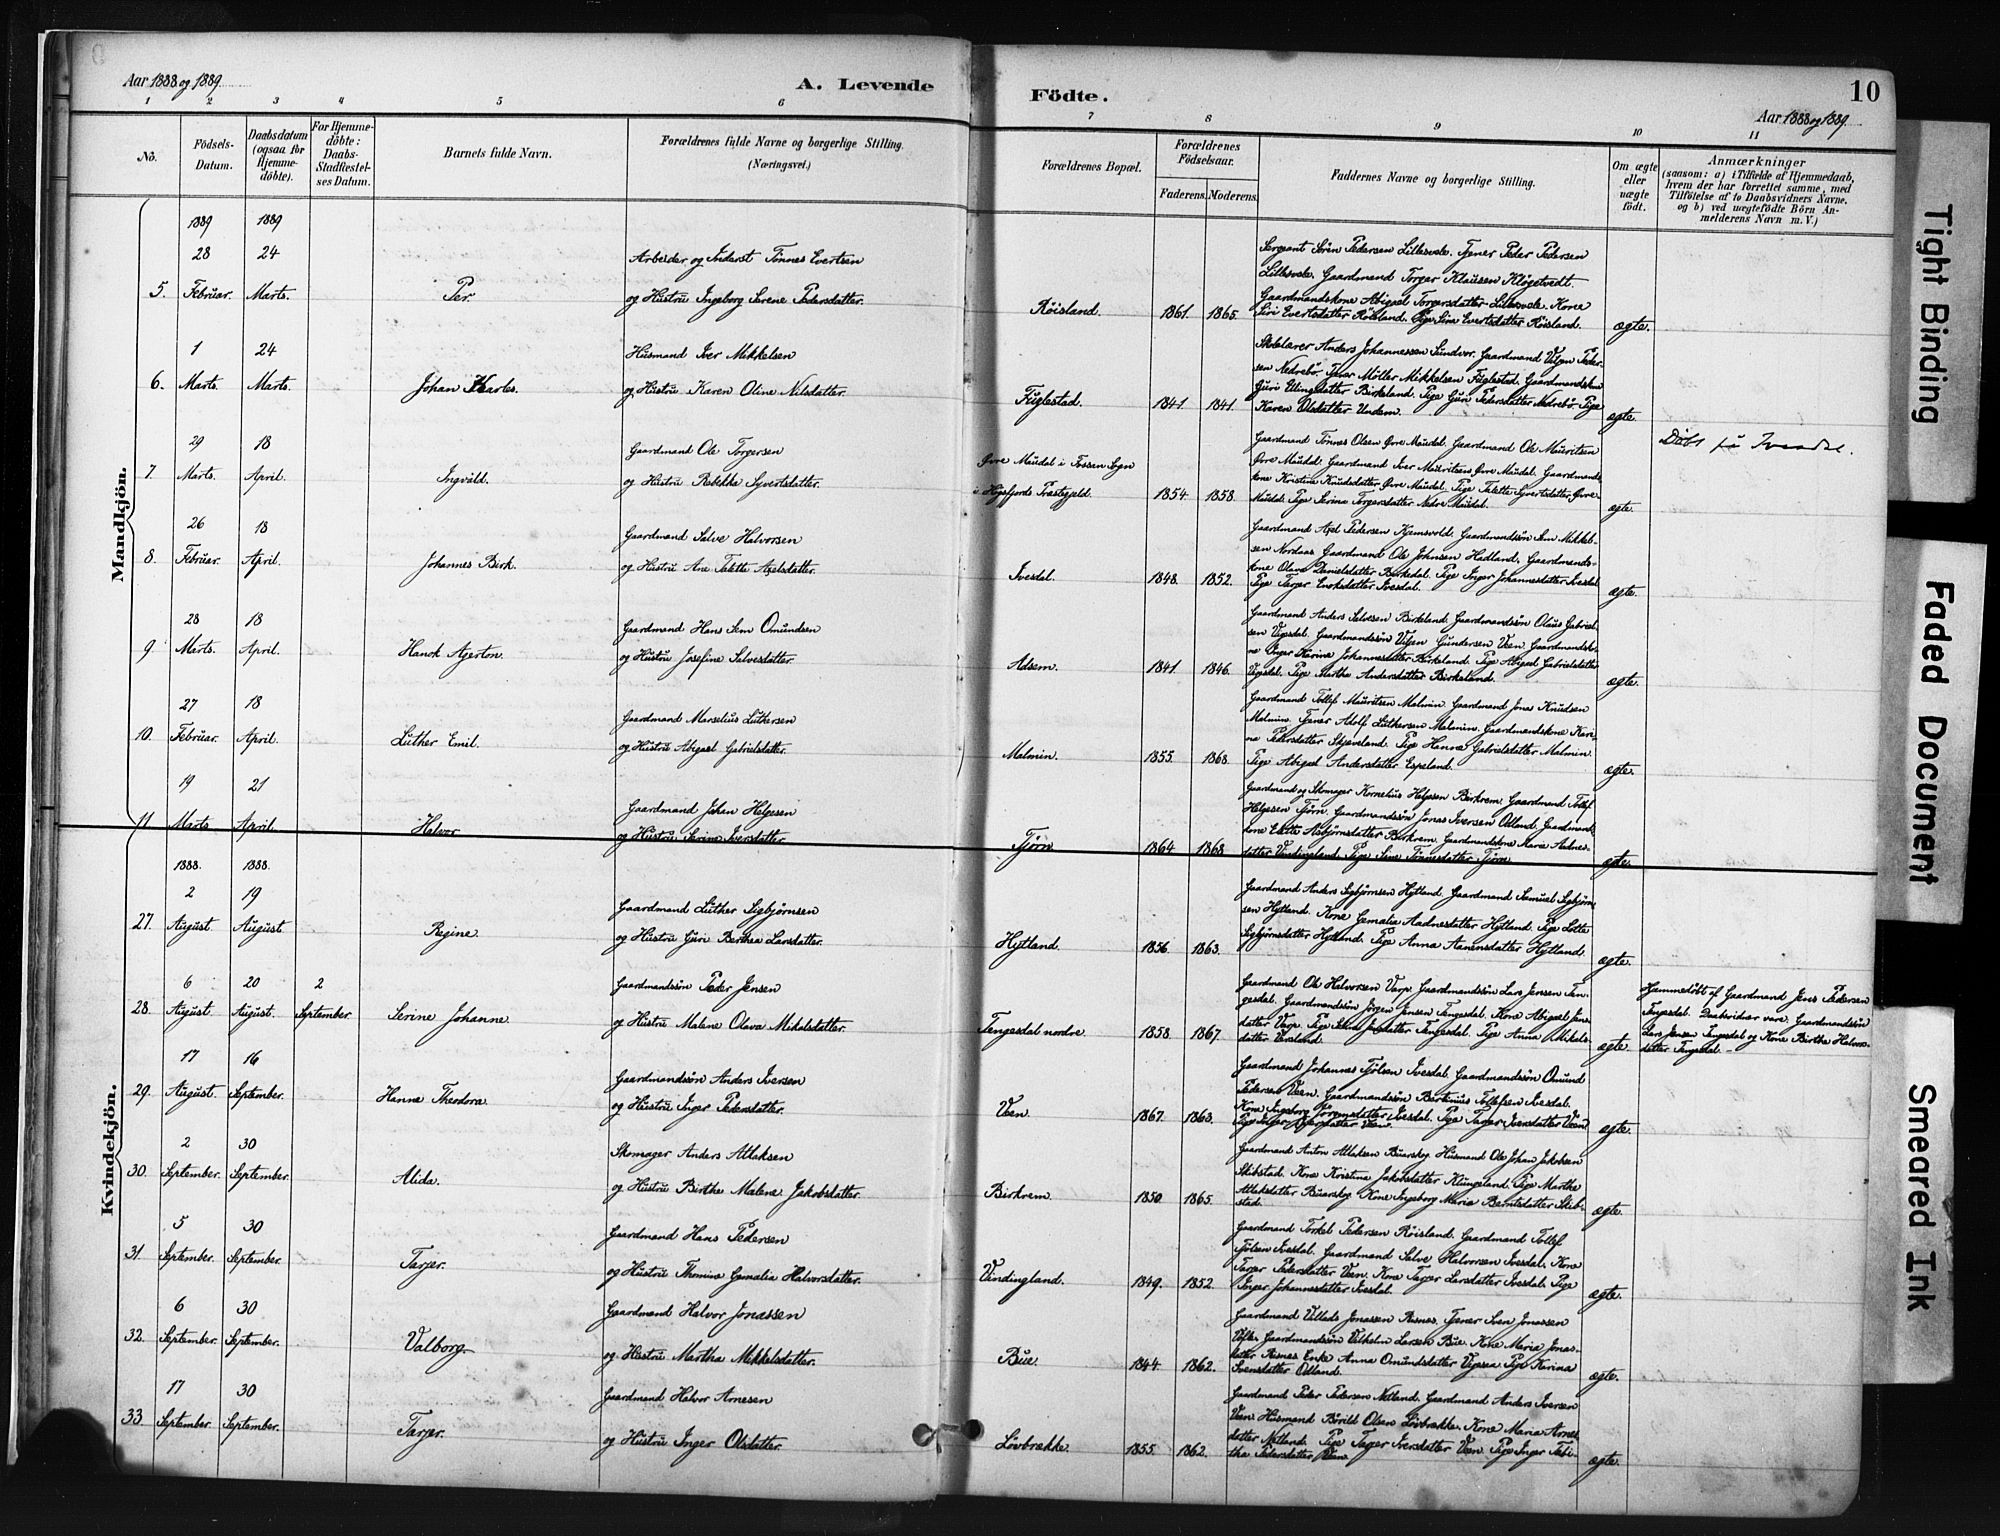 Aar 1888 og 1889
A. Levende
Födte.
10
Aar 1888 og 1889.
1 2 3 4 5 6 7 8 9 10 11
No.
Födsels-
Datum.
Daabsdatum
(ogsaa for
Hjemme-
döbte).
For Hjemme-
döbte:
Daabs-
Stadfæstel-
ses Datum.
Barnets fulde Navn.
Forældrenes fulde Navne og borgerlige Stilling.
(Næringsvei.)
Forældrenes Bopæl.
Forældrenes
Födselsaar.
Faderens. Moderens.
Faddernes Navne og borgerlige Stilling.
Om ægte
eller
uægte
födt.
Anmærkninger
(saasom: a) i Tilfælde af Hjemmedaab,
hvem der har forrettet samme, med
Tilföielse af to Daabsvidners Navne.
og b) ved uægtefödte Börn An-
melderens Navn m. V.)
Mandkjön.
1889 1889
28 24
5. Februar. Marts. Per
Arbeider og Inderst Tönnes Evertsen
og Hustru Ingeborg Serene Pedersdatter.
Röisland. 1861. 1865.
Sergeant Sören Pedersen Lillesvele. Tjener Peder Pedersen
Lillesvele. Gaardmand Torger Klausen Klögetvedt.
Gaardmandskone Abigael Torgersdatter Lillesvele. Kone
Siri Evertsdatter Röisland. Pige Sine Evertsdatter Röisland.
ægte.
1 24
6. Marts. Marts. Johan Karles.
Husmand Iver Mikkelsen
og Hustru Karen Oline Nilsdatter.
Fuglestad. 1841. 1841.
Skolelærer Anders Johannessen Sundvor. Gaardmand Villum Peder-
sen Nedrebö. Tjener Möller Mikkelsen Fuglestad. Gaardmandskone
Guri Ellingsdatter Birkeland. Pige Guri Pedersdatter Nedrebö. Pige
Karen Olsdatter Undem.
ægte.
29 18
7. Marts. April. Ingvald.
Gaardmand Ole Torgersen
og Hustru Rebekka Syvertsdatter.
Övre Maudal i Fossan Sogn
i Högsfjords Præstegjæld. 1854. 1858.
Gaardmand Tönnes Olsen Övre Maudal. Gaardmand Ole Mauritsen
Övre Maudal. Gaardmand Iver Mauritsen Övre Maudal. Gaardmands-
kone Kristina Knudsdatter Övre Maudal. Pige Talette Syvertsdatter Övre
Maudal. Pige Serina Torgersdatter Nedre Maudal.
ægte.
Döbt
26 18
8. Februar. April. Johannes Birk.
Gaardmand Salve Halvorsen
og Hustru Ane Talette Axelsdatter.
Ivesdal. 1848. 1852.
Gaardmand Axel Pedersen Kjemsvold. Gaardmandssön Sem Mikkel-
sen Nordaas. Gaardmand Ole Johnsen Hadland. Gaardmands-
kone Olava Danielsdatter Birkedal. Pige Inger Johannesdatter Ivesdal
Pige Tarjer Eneksdatter Ivesdal.
ægte.
28 18
9. Marts. April. Hanok Agerton.
Gaardmand Hans Sem Omundsen
og Hustru Josefine Salvesdatter.
Adsem. 1841. 1846.
Gaardmand Anders Salvesen Birkeland. Gaardmandssön Olaus Gabriel-
sen Vigesdal. Gaardmandssön Villum Gundersen Veen. Gaardmandsko-
ne Inger Karine Johannesdatter Birkeland. Pige Abigael Gabrielsdatter
Vigesdal. Pige Martha Andersdatter Birkeland.
ægte.
27 18
10. Februar. April. Luther Emil.
Gaardmand Marselius Luthersen
og Hustru Abigael Gabrielsdatter.
Malmin. 1855. 1868.
Gaardmand Tollef Mauritsen Malmin. Gaardmand Jonas Knudsen
Malmin. Tjener Adolf Luthersen Malmin. Gaardmandskone Kari-
na Pedersdatter Skjeveland. Pige Hanna Gabrielsdatter Malmin.
Pige Abigael Andersdatter Espeland.
ægte.
19 21
11 Marts April. Halvor
Gaardmand Johan Helgesen
og Hustru Serine Iversdatter.
Tjörn 1864 1868
Gaardmand og Skomager Kornelius Helgesen Birkrem. Gaardmand Tollef
Helgesen Tjörn. Gaardmandssön Jonas Iversen Odland. Gaardmands-
kone Elette Asbjörnsdatter Birkrem. Gaardmandskone Maria Aadnes-
datter Vindingland. Pige Sine Tönnesdatter Tjörn
ægte.
Kvindekjön.
1888. 1888.
2 19
27. August. August. Regine.
Gaardmand Luther Sigbjörnsen
og Hustru Guri Berthea Larsdatter.
Hytland. 1856. 1863.
Gaardmand Anders Sigbjörnsen Hytland. Gaardmand Samuel Sigbjörn-
sen Hytland. Kone Gemalia Aadnesdatter Hytland. Pige Lotte
Sigbjörnsdatter Hytland. Pige Anna Aanensdatter Hytland.
ægte.
6 20 2
28. August. August. September. Serine Johanne.
Gaardmandssön Peder Jensen
og Hustru Malene Olava Mikalsdatter.
Tengesdal nordre. 1858. 1867.
Gaardmand Ole Halvorsen Varp. Gaardmandssön Lars Jenssen Ten-
gesdal. Gaardmandssön Jörgen Jensen Tengesdal. Kone Abigael Jens-
datter Varp. Pige Jensdatter Tengesdal. Pige Anna Mikals-
datter
ægte.
Hjemmedöbt af Gaardmand Jens Pedersen
Tengesdal. Daabsvidner vare: Gaardmandssön
Lars Jensen Tengesdal og Kone Birtha Halvors-
datter Tengesdal.
17 16
29. August. September. Hanna Theodora.
Gaardmandssön Anders Iversen
og Hustru Inger Pedersdatter.
Veen. 1867. 1863.
Gaardmand Johannes Tjölsen Ivesdal. Gaardmandssön Omund
Pedersen Veen. Gaardmandssön Bertinius Tollefsen Ivesdal.
Kone Ingeborg Ivesdal. Pige Tarjer Iversdatter Veen.
Pige Inger Veen.
ægte.
2 30
30. September. September. Alida.
Skomager Anders Atlaksen
og Hustru Birthe Malene Jakobsdatter.
Birkrem. 1850. 1865.
Gaardmand Anton Atlaksen Buarskog. Husmand Ole Johan Jakobsen
Skibstad. Kone Kristina Jakobsdatter Klungland. Pige Martha
Atlaksdatter Buarskog. Kone Ingeborg Maria Berntsdatter Skib-
stad.
ægte.
5 30
31. September. September. Tarjer.
Gaardmand Hans Pedersen
og Hustru Thomine Gemalia Halvorsdatter.
Vindingland. 1849. 1852.
Gaardmand Torkel Pedersen Röisland. Gaardmand Tollef
Tjölsen Ivesdal. Gaardmand Salve Halvorsen Ivesdal. Kone
Tarjer Pedersdatter Veen. Kone Tarjer Larsdatter Ivesdal. Pige
Inger Johannesdatter Ivesdal.
ægte.
6 30
32. September. September. Valborg.
Gaardmand Halvor Jonassen
og Hustru Martha Mikkelsdatter.
Bue. 1844. 1862.
Gaardmand Villads Jonassen Resnes. Tjener Sven Jonassen
Gaardmandssön Vilhelm Larsen Bue. Kone Maria Jonas-
datter Resnes. Enke Anna Omundsdatter Vigesaa. Pige Karina
Svensdatter Odland.
ægte.
17 30
33 September. September. Tarjer.
Gaardmand Halvor Arnesen
og Hustru Inger Olsdatter.
Lövbrække. 1855. 1862.
Gaardmand Peder Pedersen Netland. Gaardmand Anders Iversen
Veen. Husmand Börild Olsen Lövbrække. Kone Maria Arnes-
datter Netland. Pige Tarjer Iversdatter Veen. Pige Inger Tabi-
tha Pedersdatter Veen.
ægte.
Tight Binding
Faded Document
Smeared Ink